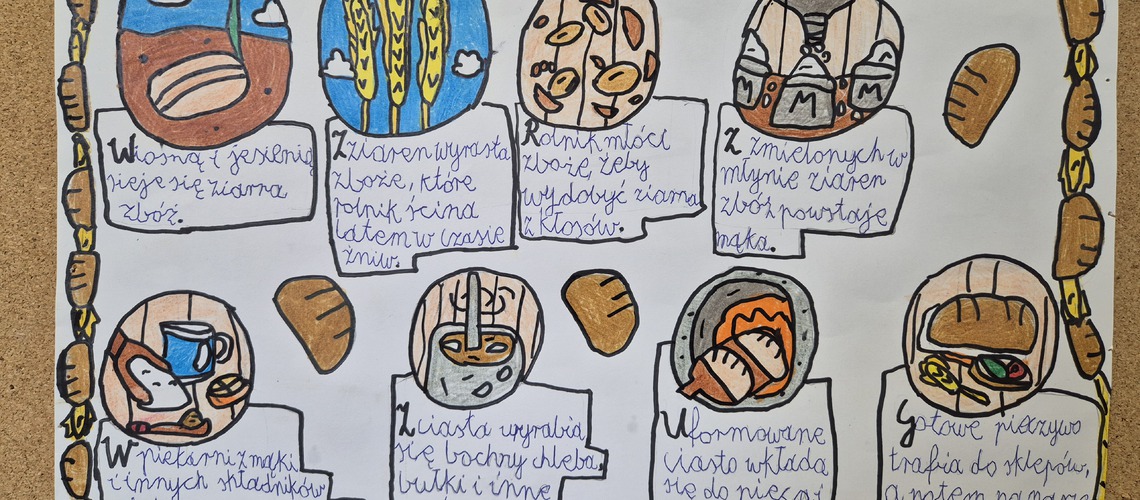 Wiosną i jesienią
sieje się ziarna
zbóż.
Z ziaren wyrasta
zboże, które
rolnik ścina
latem w czasie
żniw.
Rolnik młóci
zboże, żeby
wydobyć ziarna
z kłosów.
M
M
M
Z zmielonych w
młynie ziaren
zbóż powstaje
mąka.
W piekarni z mąki
i innych składników
Z ciasta wyrabia
się bochny chleba,
bułki i inne
Uformowane
ciasto wkłada
się do pieca i
Gotowe pieczywo
trafia do sklepów,
a potem na nasze